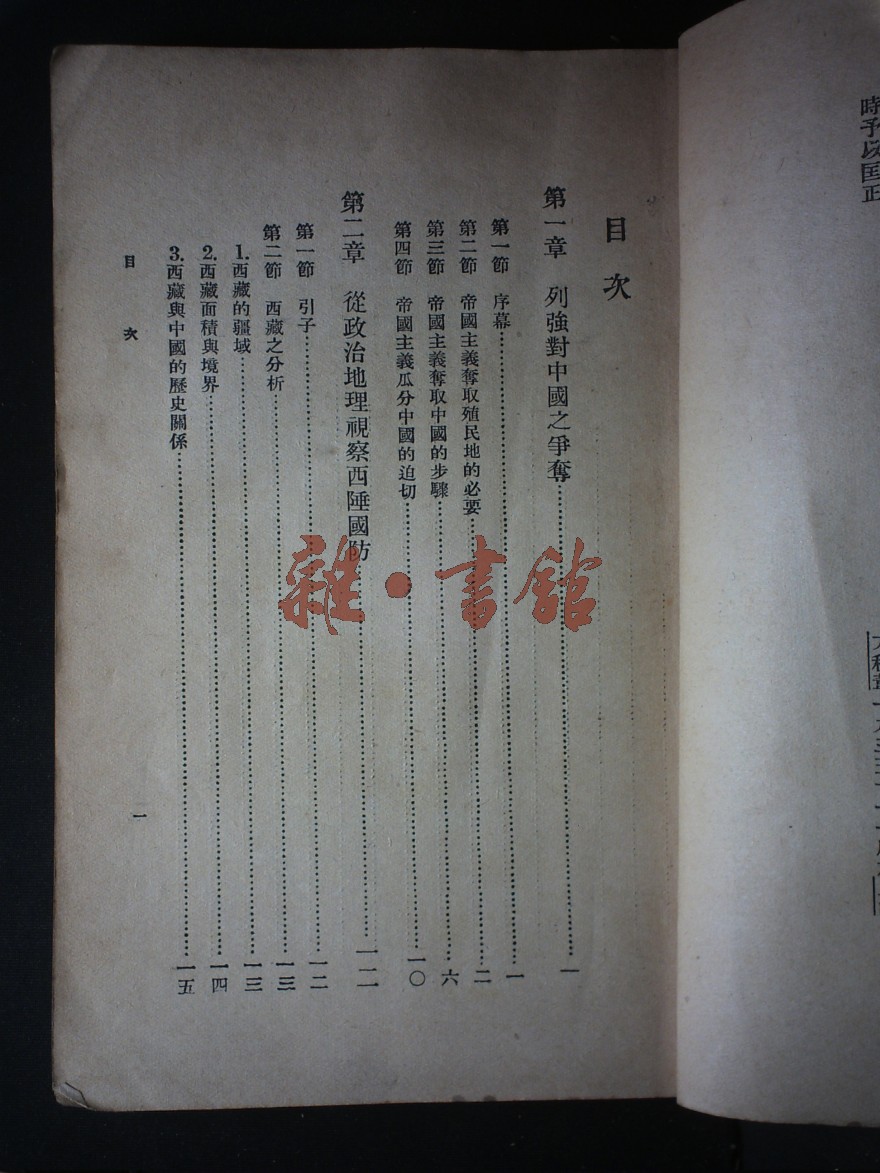 時予以匡正
目次
第一章 列強對中國之爭奪……一
第一節 序幕……一
第二節 帝國主義奪取殖民地的必要……二
第三節 帝國主義奪取中國的步驟……六
第四節 帝國主義瓜分中國的迫切……一〇
第二章 從政治地理視察西陲國防……一二
第一節 引子……一二
第二節 西藏之分析……一三
1.西藏的疆域……一三
2.西藏面積與境界……一四
3.西藏與中國的歷史關係……一五
目次
一
雜·書館